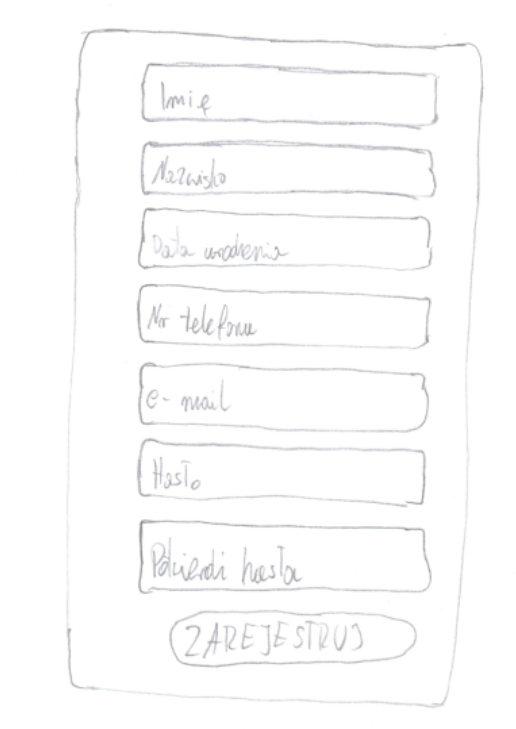 Imię
Nazwisko
Data urodzenia
Nr telefonu
e-mail
Hasło
hasła
ZAREJESTRUJ